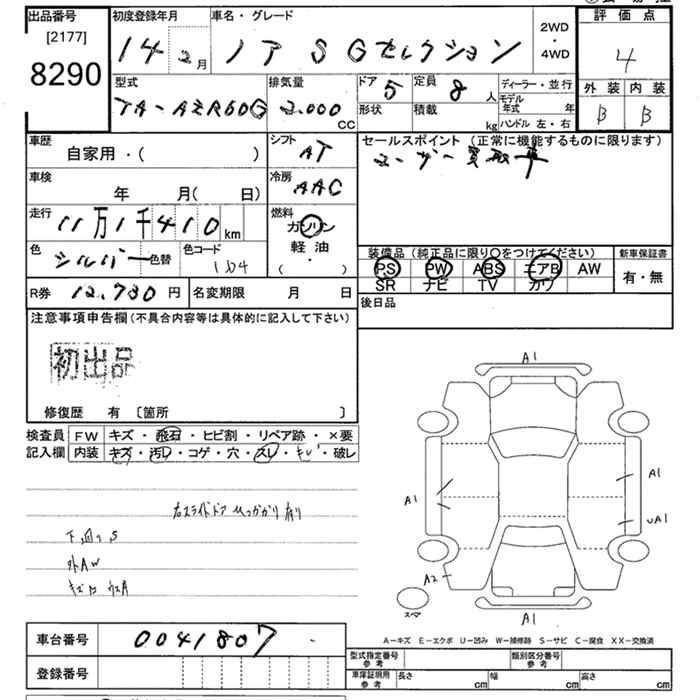 出品番号 初度登録年月 車名・グレード 評価点
[2177] 8290
14 2月 ノア SGセレクション 2WD・4WD 4
外装 内装
B B
型式 排気量 ドア 5 定員 8人 ディーラー・並行
TA-AZR60G 2.000cc 形状 積載 kg モデル年式 年
ハンドル 左・右
車歴 シフト セールスポイント (正常に機能するものに限ります)
自家用・( ) AT ユーザー買取車
車検 冷房
年 月( 日) AAC
走行 燃料
11万1千410km ガソリン
軽油
・( )
色 シルバー 色替 色コード 1D4
装備品 (純品品に限り○をつけてください) 新車保証書
PS PW ABS エアB AW 有・無
SR ナビ TV カワ
R券 12,730円 名変期限 月 日 後日品
注意事項申告欄 (不具合内容等は具体的に記入して下さい)
初出品
修復歴 有 〔箇所 〕
検査員 FW キズ・飛石・ヒビ割・リペア跡・×要
記入欄 内装 キズ・汚レ・コゲ・穴・スレ・ ・破レ
右スライドドア ひっかかり有り
下回りS
外AW
A1
A1
A1
uA1
A2
スペア
A1
A-キズ E-エクボ U-凹み W-補修跡 S-サビ C-腐食 XX-交換済
車台番号 0041807
登録番号
型式指定番号 参考 類別区分番号 参考
車庫証明用 参考 長さ cm 幅 cm 高さ cm